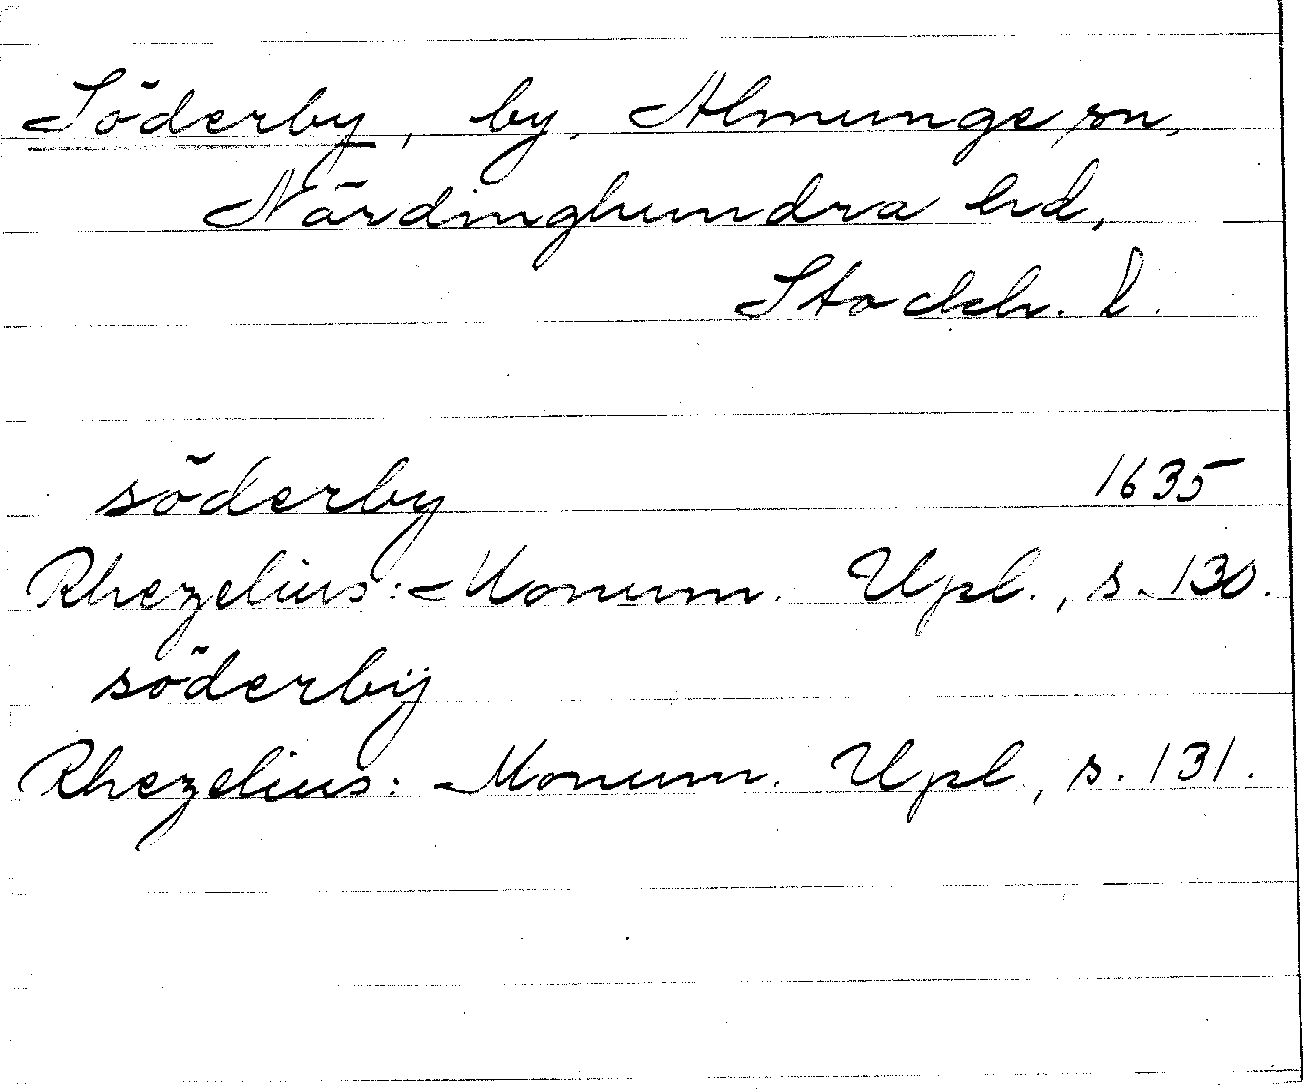 Söderby, by, Almunge sn,
Närdinghundra hd,
Stockh. l.
söderby 1635
Rhezelius: Monum. Upl., s. 130.
söderbÿ
Rhezelius: Monum. Upl, s. 131.